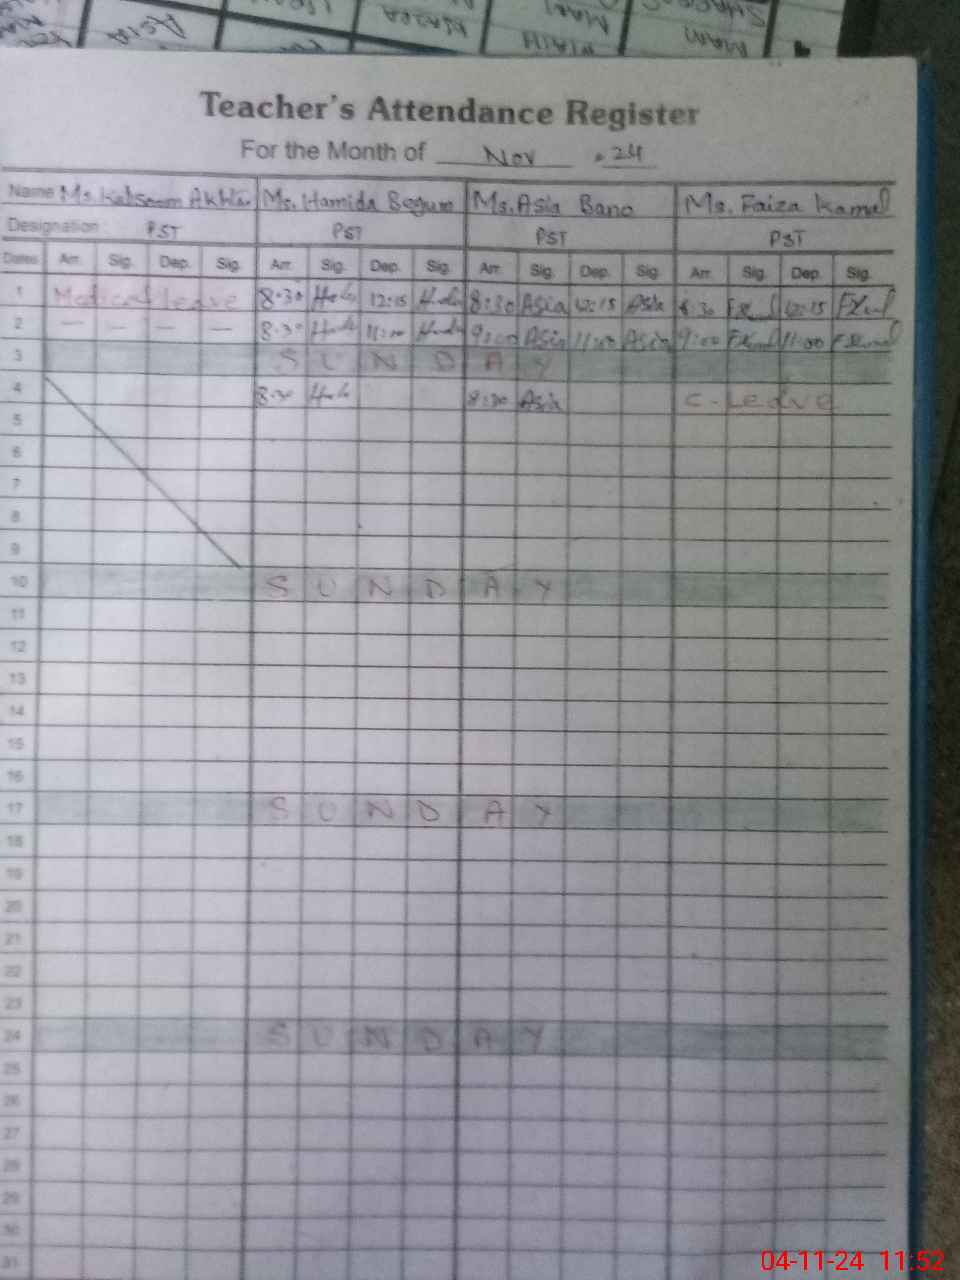 Teacher's Attendance Register
For the Month of Nov . 24
Name Ms. Kalsoom Akhtar Ms. Hamida Begum Ms. Asia Bano Ms. Faiza Kamal
Designation PST PST PST PST
Dates Arr. Sig. Dep. Sig. Arr. Sig. Dep. Sig. Arr. Sig. Dep. Sig. Arr. Sig. Dep. Sig.
1 Medical leave 8:30 12:15 8:30 Asia 12:15 Asia 8:30 12:15
2 — — — — 8:30 11:00 9:00 Asia 11:00 Asia 9:00 11:00
3 S U N D A Y
4 8:30 8:30 Asia C. Leave
5
6
7
8
9
10 S U N D A Y
11
12
13
14
15
16
17 S U N D A Y
18
19
20
21
22
23
24 S U N D A Y
25
26
27
28
29
30
31
04-11-24 11:52